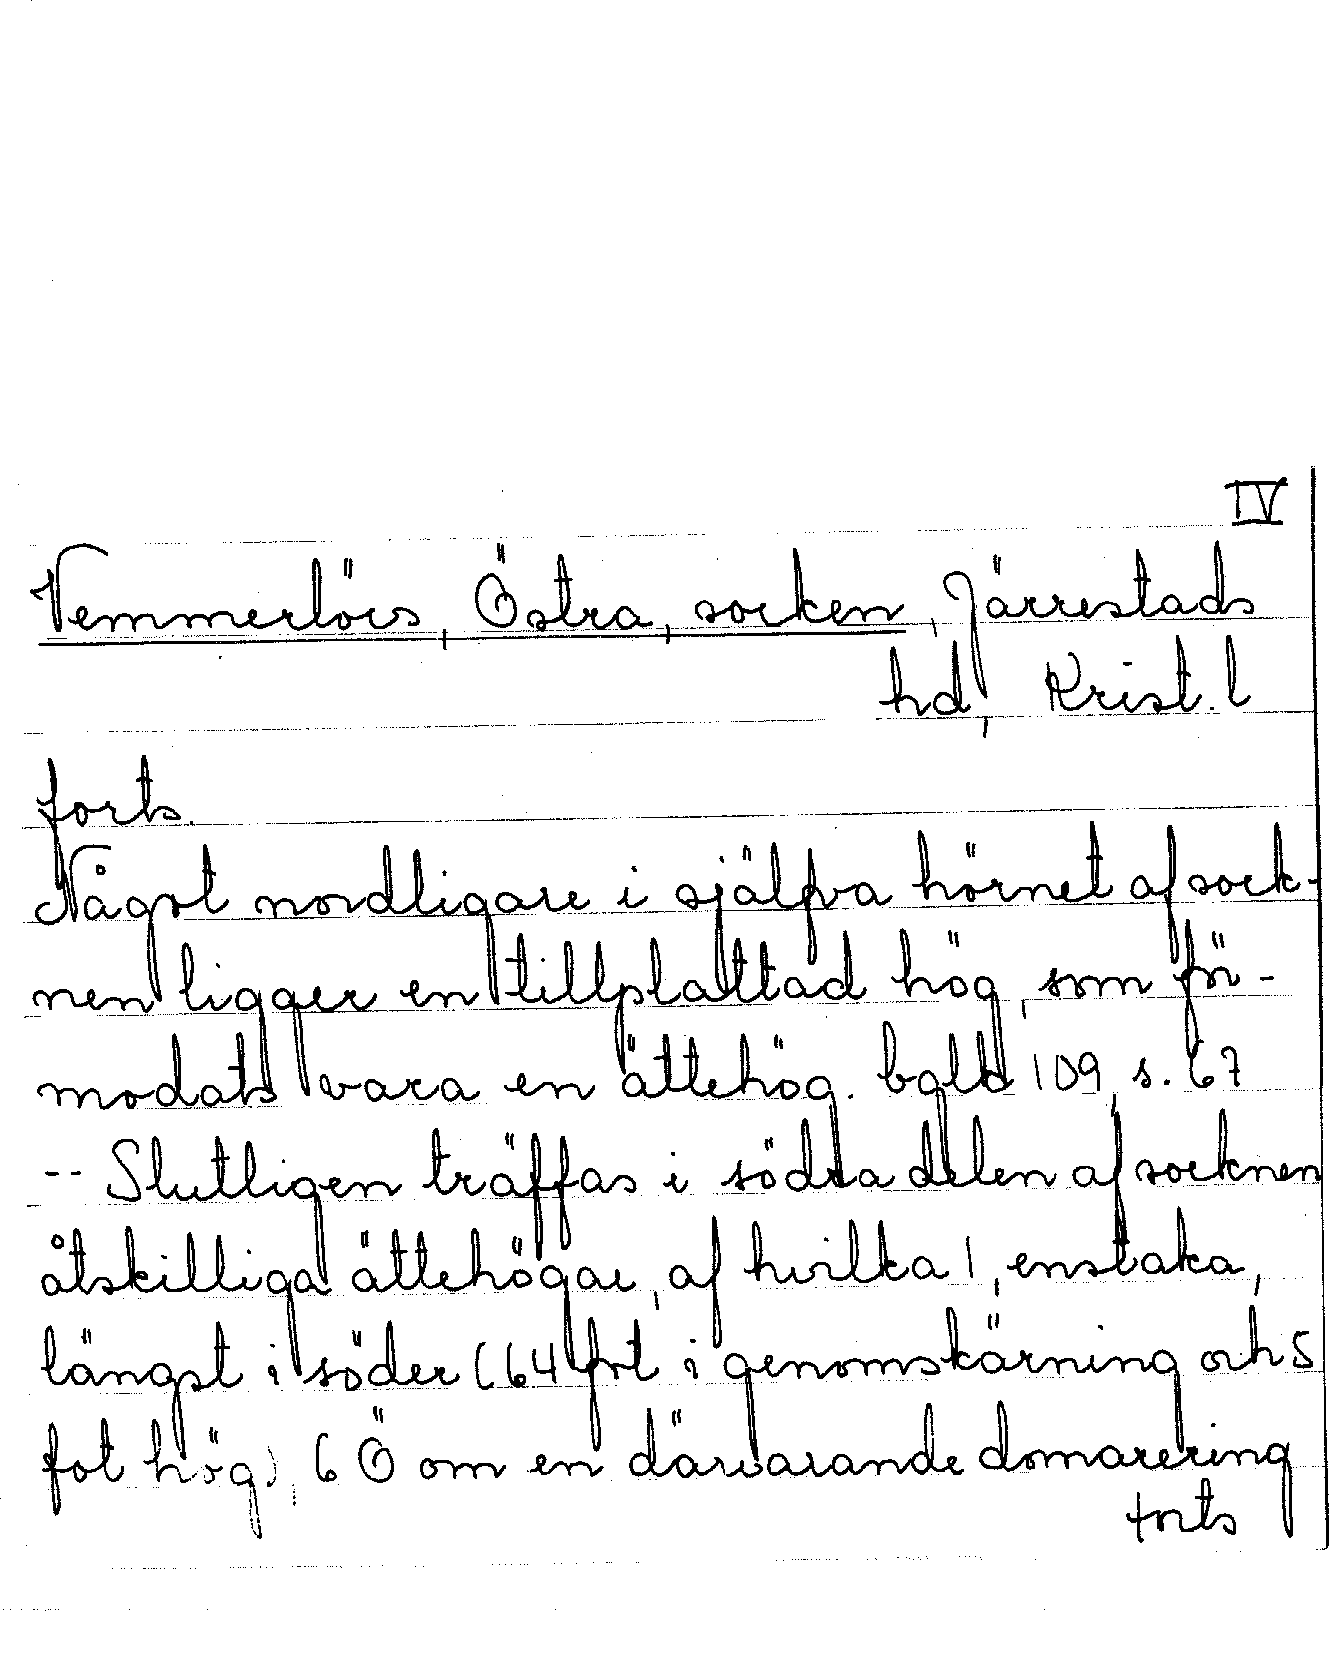 IV
Vemmerlövs, Östra, socken, Järrestads
hd, Krist. l
forts.
Något nordligare i själfva hörnet af sock-
nen ligger en tillplattad hög, som för-
modats vara en ättehög. bgld 109 s. 67
-- Slutligen träffas i södra delen af socknen
åtskilliga ättehögar, af hvilka 1, enstaka,
längst i söder (64 fot i genomskärning och 5
fot hög), 6 Ö om en därvarande domarering
forts